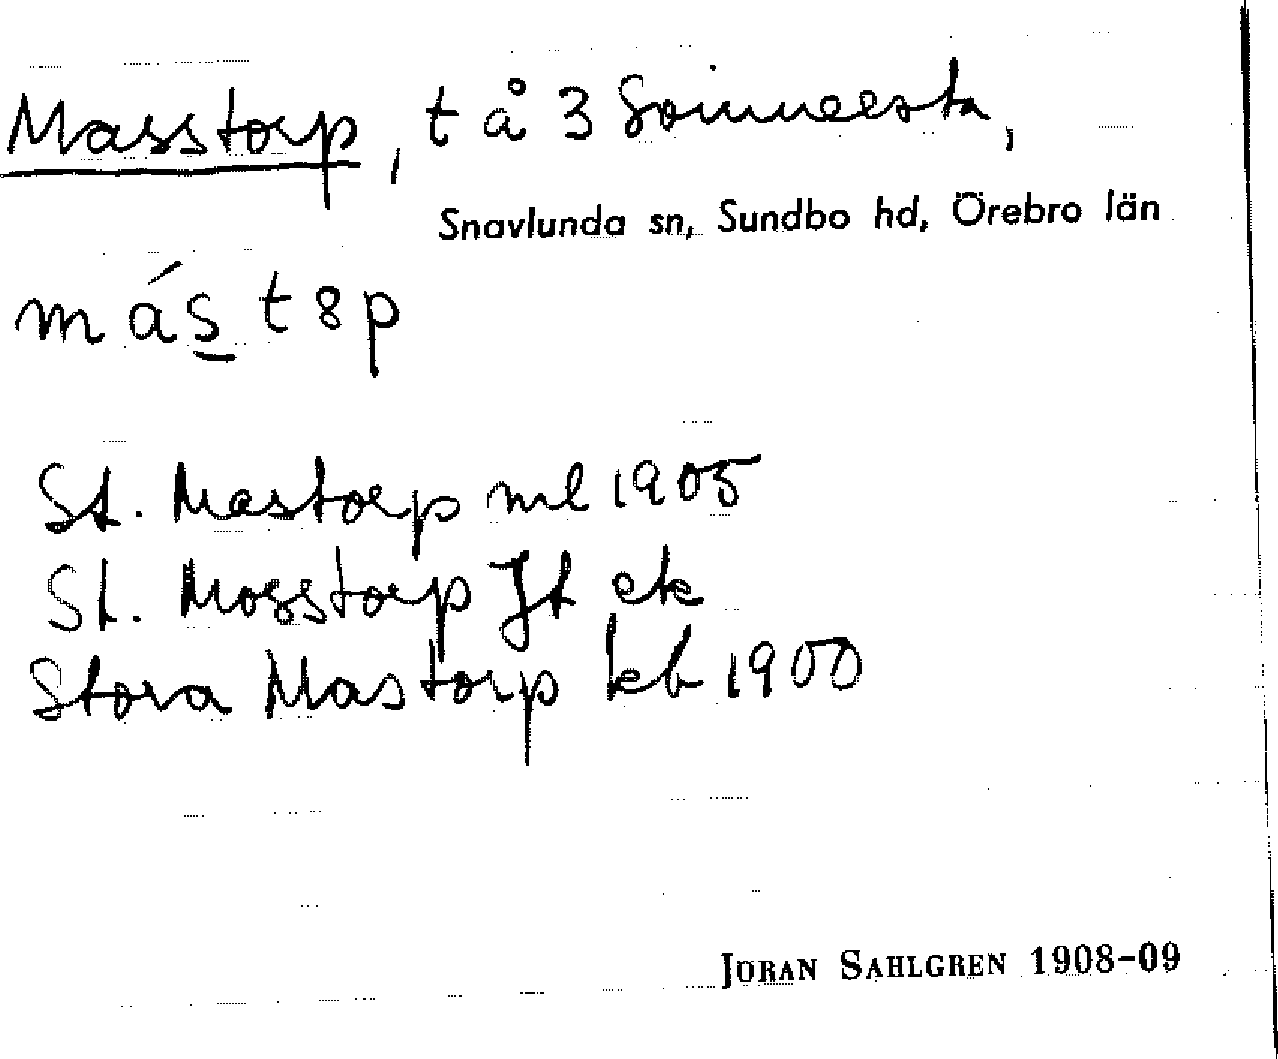 Masstorp, t å 3
Snavlunda sn, Sundbo hd, Örebro län
más t8p
St. Mastorp ml 1905
St. Mosstorp Jt ek
Stora Mastorp kb 1900
JÖRAN SAHLGREN 1908-09